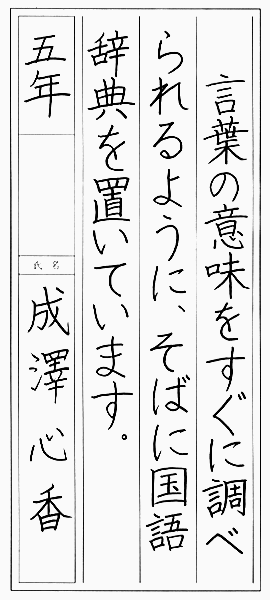 言葉の意味をすぐに調べ
られるように、そばに国語
辞典を置いています。
五年
氏名
成澤心香